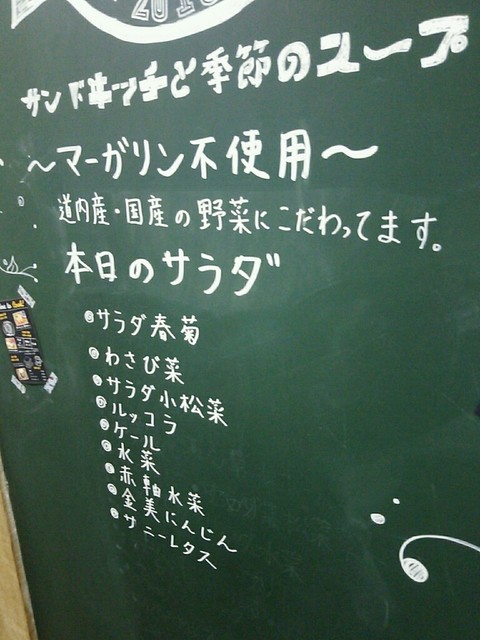 2016
サンドヰッチと季節のスープ
～マーガリン不使用～
道内産・国産の野菜にこだわってます。
本日のサラダ
サラダ春菊
わさび菜
サラダ小松菜
ルッコラ
ケール
水菜
赤軸水菜
金美にんじん
サニーレタス